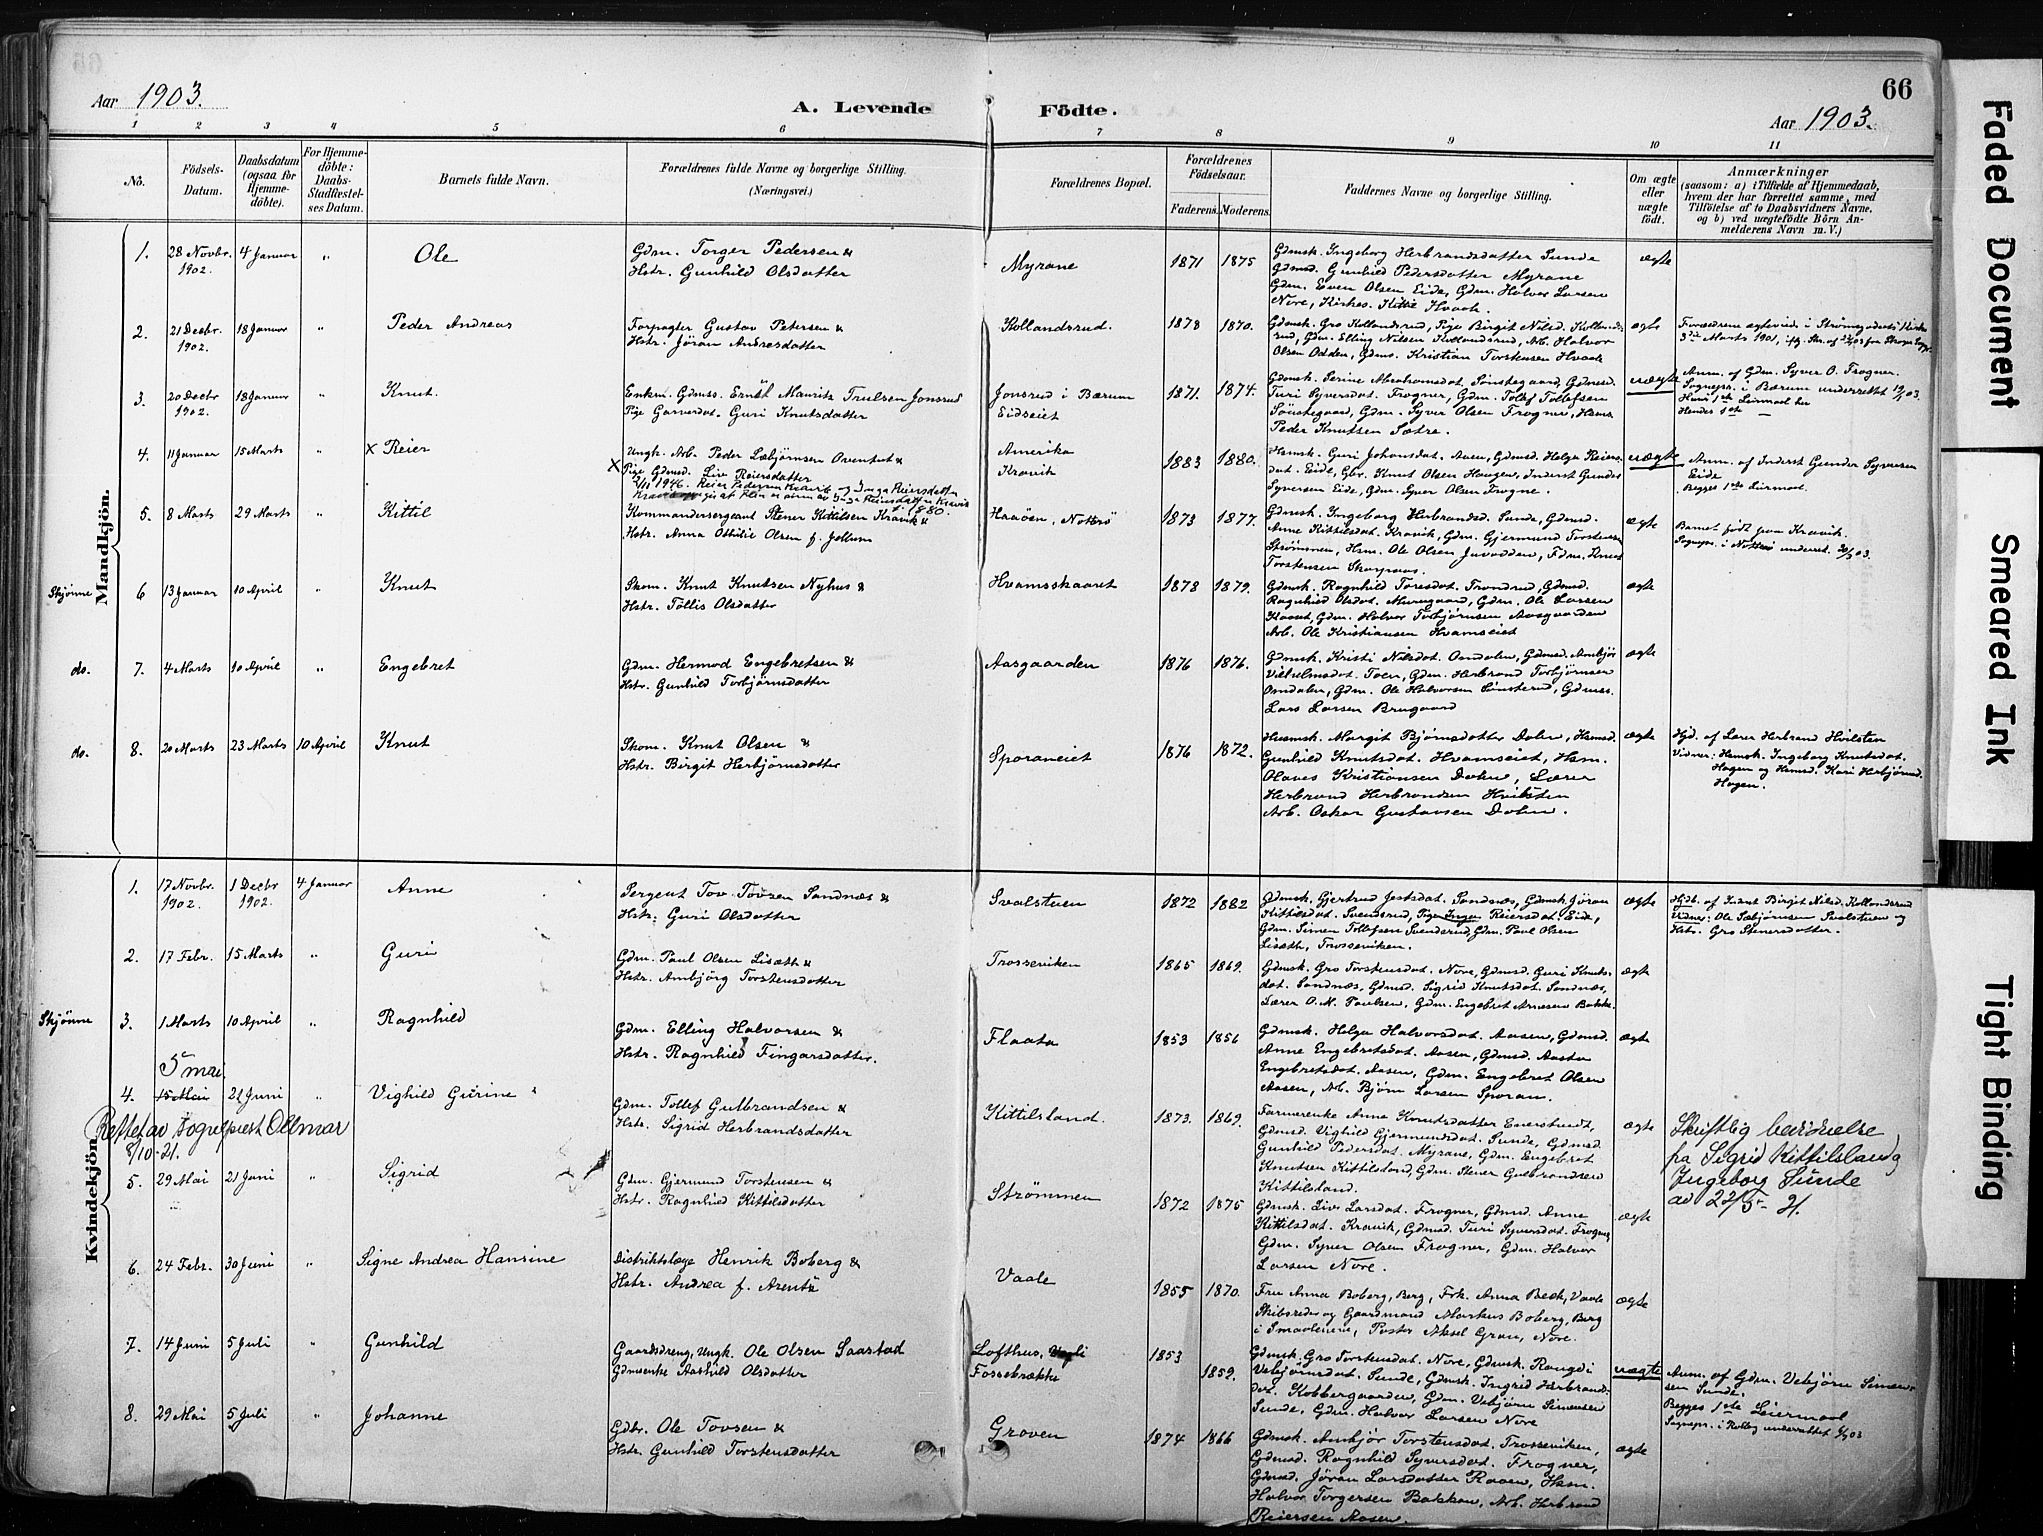 66
Aar 1903.
A. Levende Födte.
Aar 1903.
1 2 3 4 5 6 7 8 9 10 11
No.
Födsels-Datum.
Daabsdatum (ogsaa for Hjemme-döbte).
For Hjemme-döbte: Daabs-Stadfæstel-ses Datum.
Barnets fulde Navn.
Forældrenes fulde Navne og borgerlige Stilling.
(Næringsvei.)
Forældrenes Bopæl.
Forældrenes Födselsaar.
Faderens. Moderens.
Faddernes Navne og borgerlige Stilling.
Om ægte eller uægte födt.
Anmærkninger
(saasom: a) i Tilfælde af Hjemmedaab, hvem der har forrettet samme, med Tilföielse af to Daabsvidners Navne, og b) ved uægtefödte Börn An-melderens Navn m. V.)
Mandkjön.
1. 28 Novbr. 1902. 4 Januar " Ole
Gdm. Torger Pedersen &
Hstr. Gunhild Olsdatter
Myrane 1871 1875
Gdmsk. Ingeborg Herbrandsdatter Sunde
Gdmsd. Gunhild Pedersdatter Myrane
Gdm. Even Olsen Eide, Gdm. Halvor Larsen
Nore, Kirkes. Kittil Hvaale.
ægte
2. 21 Decbr. 1902. 18 Januar " Peder Andreas
Forpagter Gustav Petersen &
Hstr. Jöran Andresdatter
Kollandsrud. 1878 1870.
Gdmsk. Gro Kollandsrud, Pige Birgit Nilsd. Kollands-
rud, Gdm. Elling Nilsen Kollandsrud, Arb. Halvor
Olsen Odden, Gdms. Kristian Torstensen Hvaale
ægte
Forældrene ægteviede i Strömsgodsets Kirke
3die Marts 1901,
3. 20 Decbr 1902. 18 Januar " Knut.
Enkm. Gdmss. Ernst Mauritz Trulsen Jonsrud
Pige Gaardsd. Guri Knutsdatter
Jonsrud i Bærum
Eidseiet
1871. 1874.
Gdmsk. Serine Abrahamsdat. Sönstegaard, Gdmsd.
Turi Syversdat. Frogner, Gdm. Tollef Tollefsen
Sönstegaard, Gdm. Syver Olsen Frogner, Hsms.
Peder Knutsen Sætre.
uægte
Anm. af Gdm. Syver O. Frogner.
Sognepr. i Bærum underrettet 19/1 03.
Hans 1ste Leiermaal
Hendes 1ste —
4. 11 Januar 15 Marts " x Reier
Ungk. Arb. Peder Læbjörnsen &
x Pige Gdmsd. Liv Reiersdatter
2/11 1946. Reier Pedersen Kravik og Inga Reiersdatter
Amerika
Kravik
1883 1880.
Hsmsk. Guri Johansdat. Aasen, Gdmsd. Helga Reiers-
dat. Eide, Gbr. Knut Olsen Haugen, Inderst Gunder
Syversen Eide, Gdm. Syver Olsen Frogne.
uægte
Anm. af Inderst Gunder Syversen
Eide
Begges 1ste Leiermaal.
5. 8 Marts 29 Marts " Kittil
Kommandersergeant Stener Kittilsen Kravik &
Hstr. Anna Othilie Olsen f. Jellum
Haaöen, Notterö 1873 1877.
Gdmsk. Ingeborg Herbrandsd. Sunde, Gdmsd.
Anne Kittilsdat. Kravik, Gdm. Gjermund Torstensen
Strömmen, Hsm. Ole Olsen Juvodden, Fdm. Knut
Torstensen Skarpaas.
ægte
Barnet födt paa Kravik.
Sognepr. i Notterö underret. 30/3 03.
Skjönne 6 13 Januar 10 April " Knut
Skom. Knut Knutsen Nyhus &
Hstr. Töllis Olsdatter
Hvamsskaaret 1878 1879.
Gdmsk. Ragnhild Toresdat. Trondrud, Gdmsd.
Ragnhild Olsdat. Muregaard, Gdm. Ole Larsen
Kaaut, Gdm. Halvor Torbjörnsen Aasgaarden
Arb. Ole Kristiansen Hvamseiet
ægte
do. 7. 4 Marts 10 April " Engebret
Gdm. Hermod Engebretsen &
Hstr. Gunhild Torbjörnsdatter
Aasgaarden 1876 1876.
Gdmsk. Kristi Nilsdat. Omdalen, Gdmsd. Ambjör
Vilhelmsdat. Toen, Gdm. Herbrand Torbjörnsen
Omdalen, Gdm. Ole Halvorsen Sönsterud, Gdmss.
Lars Larsen Brugaard
ægte
do. 8. 20 Marts 23 Marts 10 April Knut
Skom. Knut Olsen &
Hstr. Birgit Herbjörnsdatter
Sporaneiet 1876 1872.
Husmsk. Margit Bjömsdatter Dalen, Hsmsd.
Gunhild Knutsdat. Hvamseiet, Hsm.
Olaves Kristiansen Dalen, Lærer
Herbrand Herbrandsen Hvilsten
Arb. Oskar Gustavsen Dalen.
ægte
Hjd. af Lærer Herbrand Hvilsten
Vidner: Hsmsk. Ingeborg Knutsdat.
Hagen og Hsmsd. Kari Herbjörnsd.
Hagen.
Kvindekjön.
1. 17 Novbr. 1902. 1 Decbr 1902. 4 Januar Anne
Sergent Tov Tovsen Sandnæs &
Hstr: Guri Olsdatter
Svalstuen 1872 1882
Gdmsk. Gjertrud Jostsdat. Sandnæs, Gdmsk. Jöran
Kittilsdat. Svenserud, Pige Inga Reiersdat. Eide,
Gdm. Simen Tollefsen Svenserud, Gdm. Paul Olsen
Lisæth, Trosseviken.
ægte
Hjdb. af Inderst Birgit Nilsd. Kollandsrud
Vidner: Ole Sæbjörnsen Svalstuen og
Hstr. Gro Stenersdatter.
2. 17 Febr. 15 Marts " Guri
Gdm. Paul Olsen Lisæth &
Hstr. Ambjörg Torstensdatter
Trosseviken 1865 1869.
Gdmsk. Gro Torstensdat. Nore, Gdmsd. Guri Knuts-
dat. Sandnæs, Gdmsd. Sigrid Knutsdat. Sandnæs,
Lærer O. M. Paulsen, Gdm. Engebret Arnesen Bakke.
ægte
Skjönne 3. 1 Marts 10 April " Ragnhild
Gdm. Elling Halvorsen &
Hstr. Ragnhild Fingarsdatter.
Flaata 1853 1856
Gdmsk. Helga Halvorsdat. Aasen, Gdmsd.
Anne Engebretsdat. Aasen, Gdmsd. Aasta
Engebretsdat. Aasen, Gdm. Engebret Olsen
Aasen, Arb. Björn Larsen Sporan.
ægte
5 mai
4. 15 Mai 21 Juni " Vighild Gurine
Gdm. Tollef Gulbrandsen &
Hstr. Sigrid Herbrandsdatter
Rettet av sogneprest Ollmar
8/10-21.
Kittilsland. 1873. 1869.
Farmerenke Anne Knutsdatter Enerstvedt,
Gdmsd. Vighild Gjermundsdat. Sunde, Gdmsd.
Gunhild Pedersdat. Myrane, Gdm. Engebret
Knutsen Kittilsland, Gdm. Stener Gulbrandsen
Kittilsland.
ægte
Skriftlig bevidnelse
fra Sigrid Kittilsland og
Ingeborg Sunde
av 22/5-21.
5. 29 Mai 21 Juni " Sigrid
Gdm. Gjermund Torstensen &
Hstr. Ragnhild Kittilsdatter
Strömmen 1872 1875
Gdmsk. Liv Larsdat. Frogner, Gdmsd. Anne
Kittilsdat. Kravik, Gdmsd. Turi Syversdat. Frogner
Gdm. Syver Olsen Frogner, Gdm. Halvor
Larsen Nore.
ægte
6. 24 Febr. 30 Juni " Signe Andrea Hansine
Distriktslæge Henrik Boberg &
Hstr. Andrea f. Arentz
Vaale 1855 1870.
Fru Anna Boberg, Berg, Frk. Anna Beck, Vaale
Skibsreder og Gaardmand Markus Boberg, Berg
i Smaalenene, Pastor Aksel Gran, Nore.
ægte
7. 14 Juni 5 Juli " Gunhild
Gaardsdreng, Ungk. Ole Olsen Saastad
Gdmsenke Aashild Olsdatter
Lofthus, Vegli
Fossebrække
1853
1859.
Gdmsk. Gro Torstensdat. Nore, Gdmsk. Rangdi
Vebjörnsdat. Sunde, Gdmsk. Ingrid Herbrands-
dat. Kobbergaarden, Gdm. Vebjörn Simensen
Sunde, Gdm. Halvor Larsen Nore
uægte
Anm. af Gdm. Vebjörn Simen-
sen Sunde.
Begges 1ste Leiermaal
Sognepr. i Rollag underrettet 6/7 03
8. 29 Mai 5 Juli " Johanne
Gdbr. Ole Tovsen &
Hstr. Gunhild Torstensdatter
Groven 1874 1866
Gdmsk. Ambjör Torstensdat. Trosseviken,
Gdmsd. Ragnhild Syversdat. Frogner,
Gdmsd. Jöran Larsdatter Raaen, Hsm.
Halvor Torgersen Bakken, Arb. Herbrand
Reiersen Aasen.
ægte
Faded Document
Smeared Ink
Tight Binding